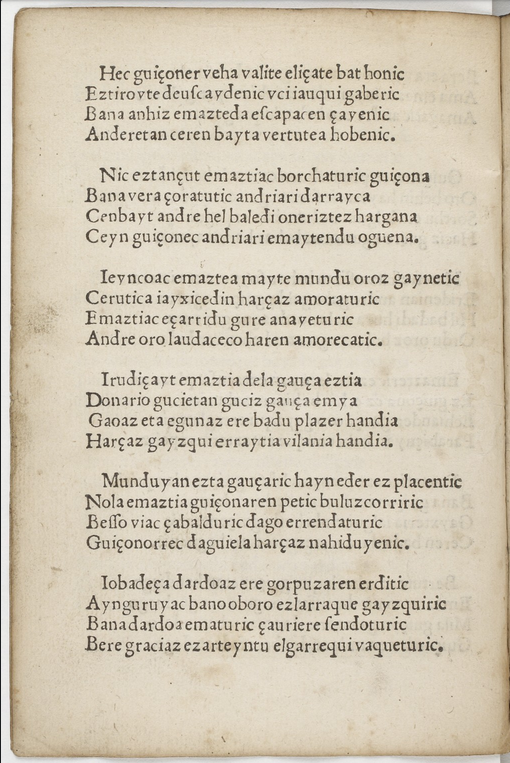 Hec guiçoner veha valite eliçate bat honic
Eztirovte deuſcaydenic vci iauqui gaberic
Bana anhiz emazteda eſcapacen çayenic
Anderetan ceren bayta vertutea hobenic.
Nic eztançut emaztiac borchaturic guiçona
Bana vera çoratutic andriari darrayca
Cenbayt andre hel baledi oneriztez hargana
Ceyn guiçonec andriari emaytendu oguena.
Ieyncoac emaztea mayte mundu oroz gaynetic
Cerutica iayxicedin harçaz amoraturic
Emaztiac eçarridu gure anayeturic
Andre oro laudaceco haren amorecatic.
Irudiçayt emaztia dela gauça eztia
Donario gucietan guciz gauça emya
Gaoaz eta egunaz ere badu plazer handia
Harçaz gayzqui erraytia vilania handia.
Munduyan ezta gauçaric hayn eder ez placentic
Nola emaztia guiçonaren petic buluzcorriric
Beſſo viac çabalduric dago errendaturic
Guiçonorrec daguiela harçaz nahiduyenic.
Iobadeça dardoaz ere gorpuzaren erditic
Aynguruyac bano oboro ezlarraque gayzquiric
Bana dardoa ematuric çauriere ſendoturic
Bere graciaz ezarteyntu elgarrequi vaqueturic.